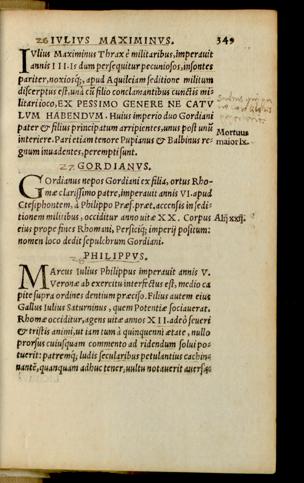 26 IVLIVS MAXIMINVS. 349
Iulius Maximinus Thrax è militaribus, imperauit
annis III. Is dum persequitur pecuniosos, insontes
pariter, noxiosq́;, apud Aquileiam seditione militum
discerptus est, unà cũ filio conclamantibus cunctis mi-
litari ioco, EX PESSIMO GENERE NE CATV
LVM HABENDVM. Huius imperio duo Gordiani
pater & filius principatum arripientes, unus post unũ
interiere. Pari etiam tenore Pupianus & Balbinus re-
gnum inuadentes, perempti sunt.
Mortuus
maior lx.
27 GORDIANVS.
Gordianus nepos Gordiani ex filia, ortus Rho-
mæ clarissimo patre, imperauit annis VI. apud
Ctesiphontem, à Philippo Præf. præt. accensis in sedi-
tionem militibus, occiditur anno uitæ XX. Corpus
Alij xxij.
eius prope fines Rhomani, Persiciq́; imperij positum:
nomen loco dedit sepulchrum Gordiani.
28 PHILIPPVS.
Marcus Iulius Philippus imperauit annis V.
Veronæ ab exercitu interfectus est, medio ca
pite supra ordines dentium præciso. Filius autem eius
Gallus Iulius Saturninus, quem Potentiæ sociauerat.
Rhomæ occiditur, agens uitæ annos XII. adeò seueri
& tristis animi, ut iam tum à quinquenni ætate, nullo
prorsus cuiusquam commento ad ridendum solui po-
tuerit: patremq́;, ludis secularibus petulantius cachin-
nantẽ, quanquam adhuc tener, uultu notauerit auerso.